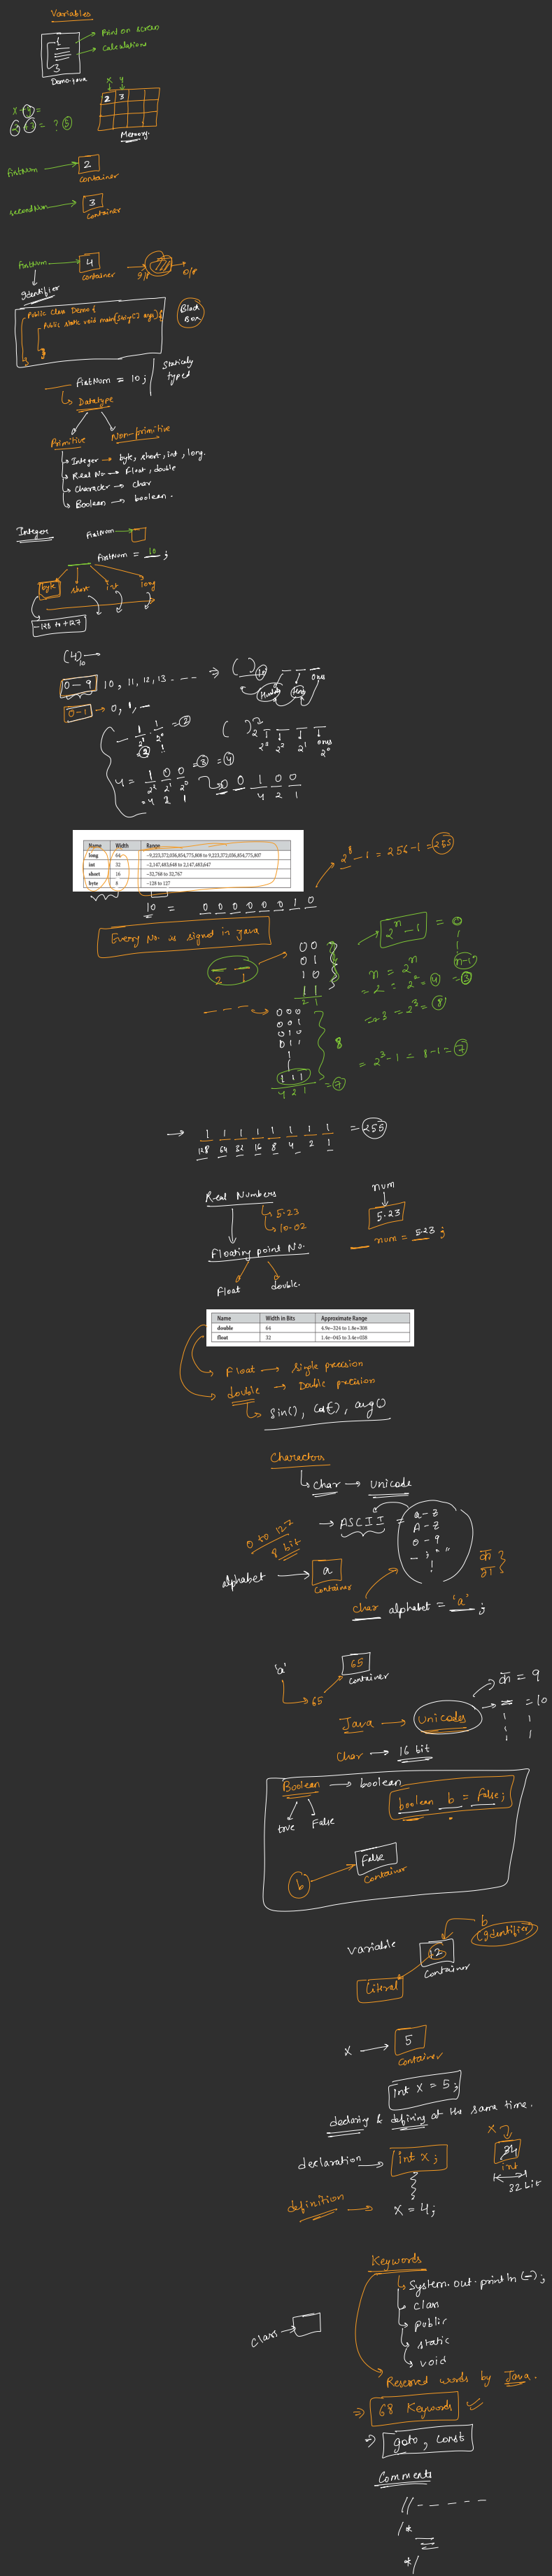 Variables
1
Print on screen
Calculations
3
Demo.java
x y
2 3
x+y =
2+3 = ? 5
Memory.
firstNum 2
container
secondNum 3
container
firstNum 4
container
I/P O/P
Identifier
Public Class Demo {
Public static void main(String[] args) {
}
}
Black Box
firstNum = 10;
Statically typed
Datatype
Primitive Non-primitive
Integer → byte, short, int, long.
Real No → Float, double
Character → char
Boolean → boolean.
Integer
firstNum
firstNum = 10 ;
byte short int long
-128 to +127
(4)10
0-9 10, 11, 12, 13 ---- → ( )10
ones
0-1 → 0, 1, --
1 1 = 3
2¹ 2⁰
( )2
2³ 2² 2¹ 2⁰
ones
4 = 1 0 0 = 4
2² 2¹ 2⁰
4 2 1
0 0 1 0 0
4 2 1
Name Width Range
long 64 –9,223,372,036,854,775,808 to 9,223,372,036,854,775,807
int 32 –2,147,483,648 to 2,147,483,647
short 16 –32,768 to 32,767
byte 8 –128 to 127
2⁸-1 = 256-1 = 255
10 = 0 0 0 0 0 0 1 0
Every No. is signed in java
2 1
0 0
0 1
1 0
1 1
2 1
2ⁿ-1 = 0
n-1
n = 2ⁿ
= 2 = 2² = 4 = 3
= 3 = 2³ = 8
000
001
010
011
111
4 2 1 = 7
8
= 2³-1 = 8-1 = 7
→ 1 1 1 1 1 1 1 1 = 255
128 64 32 16 8 4 2 1
Real Numbers
5.23
10.02
num
5.23
num = 5.23 ;
Floating point No.
Float double.
Name Width in Bits Approximate Range
double 64 4.9e–324 to 1.8e+308
float 32 1.4e–045 to 3.4e+038
Float → Single precision
double → Double precision
Characters
Char → Unicode
→ ASCII =
a-z
A-Z
0-9
!
0 to 127
8 bit
alphabet → a
Container
char alphabet = 'a' ;
'a' 65
Container
65
क = 9
= 10
Java → Unicodes
Char → 16 bit
Boolean → boolean
true False
boolean b = false;
b False
Container
Variable 12
b
(Identifier)
Container
Literal
x → 5
Container
int x = 5;
declaring & defining at the same time.
declaration → int x ;
x
int
32 bit
definition → x = 4;
Keywords
System.out.println(-);
class
public
static
void
class
Reserved words by Java.
⇒ 68 Keywords
⇒ goto, const
Comments
// - - - - - -
/*
*/